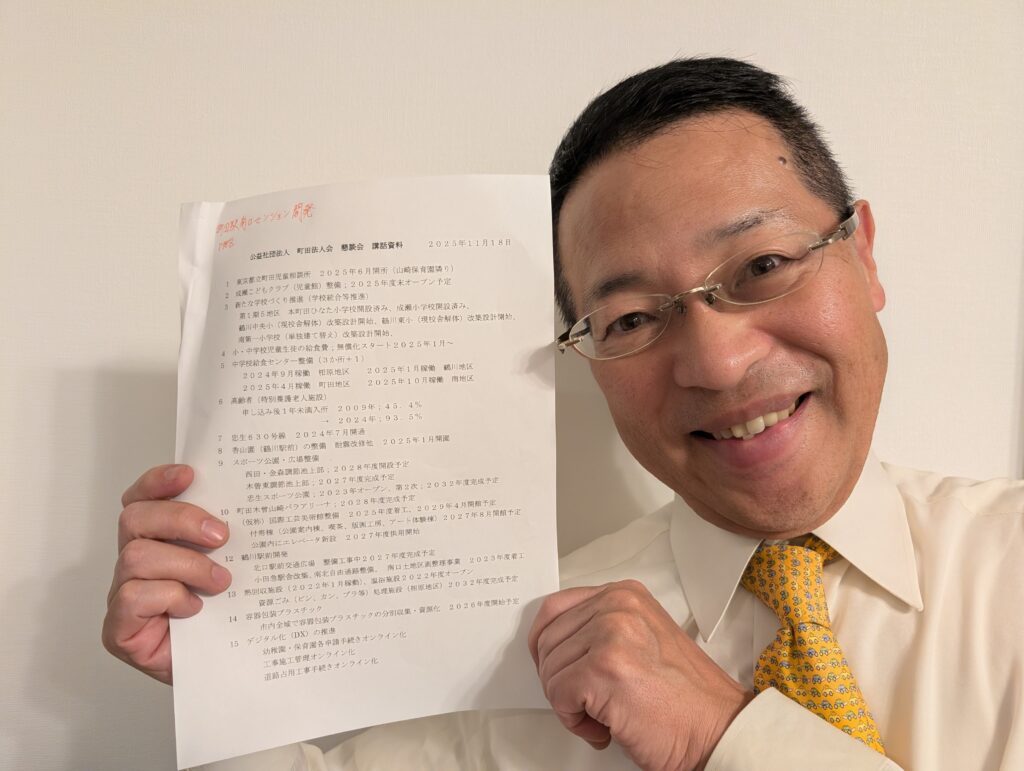 町田駅前ロセンション開発
公益社団法人 町田法人会 懇談会 講話資料 2025年11月18日
1 東京都立町田児童相談所 2025年6月開所（山崎保育園隣り）
2 成瀬こどもクラブ（児童館）整備；2025年度末オープン予定
3 新たな学校づくり推進（学校統合等推進）
第1期5地区 本町田ひなた小学校開設済み、成瀬小学校開設済み、
鶴川中央小（現校舎解体）改築設計開始、鶴川東小（現校舎解体）改築設計開始、
南第一小学校（単独建て替え）改築設計開始、
4 小・中学校児童生徒の給食費；無償化スタート2025年1月～
5 中学校給食センター整備（3か所＋1）
2024年9月稼働 相原地区 2025年1月稼働 鶴川地区
2025年4月稼働 町田地区 2025年10月稼働 南地区
6 高齢者（特別養護老人施設）
申し込み後1年未満入所 2009年；45．4％
→ 2024年；93．5％
7 忠生630号線 2024年7月開通
8 香山園（鶴川駅前）の整備 耐震改修他 2025年1月開園
9 スポーツ公園・広場整備
西田・金森調節池上部；2028年度開設予定
木曽東調節池上部；2027年度完成予定
忠生スポーツ公園；2023年オープン、第2次；2032年度完成予定
10 町田木曽山崎パラアリーナ；2028年度完成予定
（仮称）国際工芸美術館整備 2025年度着工、2029年4月開館予定
付帯棟（公園案内棟、喫茶、版画工房、アート体験棟）2027年8月開館予定
公園内にエレベータ新設 2027年度供用開始
12 鶴川駅前開発
北口駅前交通広場 整備工事中2027年度完成予定
小田急駅舎改築、南北自由通路整備、南口土地区画整理事業 2023年度着工
13 熱回収施設（2022年1月稼働）、温浴施設2022年度オープン
資源ごみ（ビン、カン、プラ等）処理施設（相原地区）2032年度完成予定
14 容器包装プラスチック
市内全域で容器包装プラスチックの分別収集・資源化 2026年度開始予定
15 デジタル化（DX）の推進
幼稚園・保育園各申請手続きオンライン化
工事施工管理オンライン化
道路占用工事手続きオンライン化